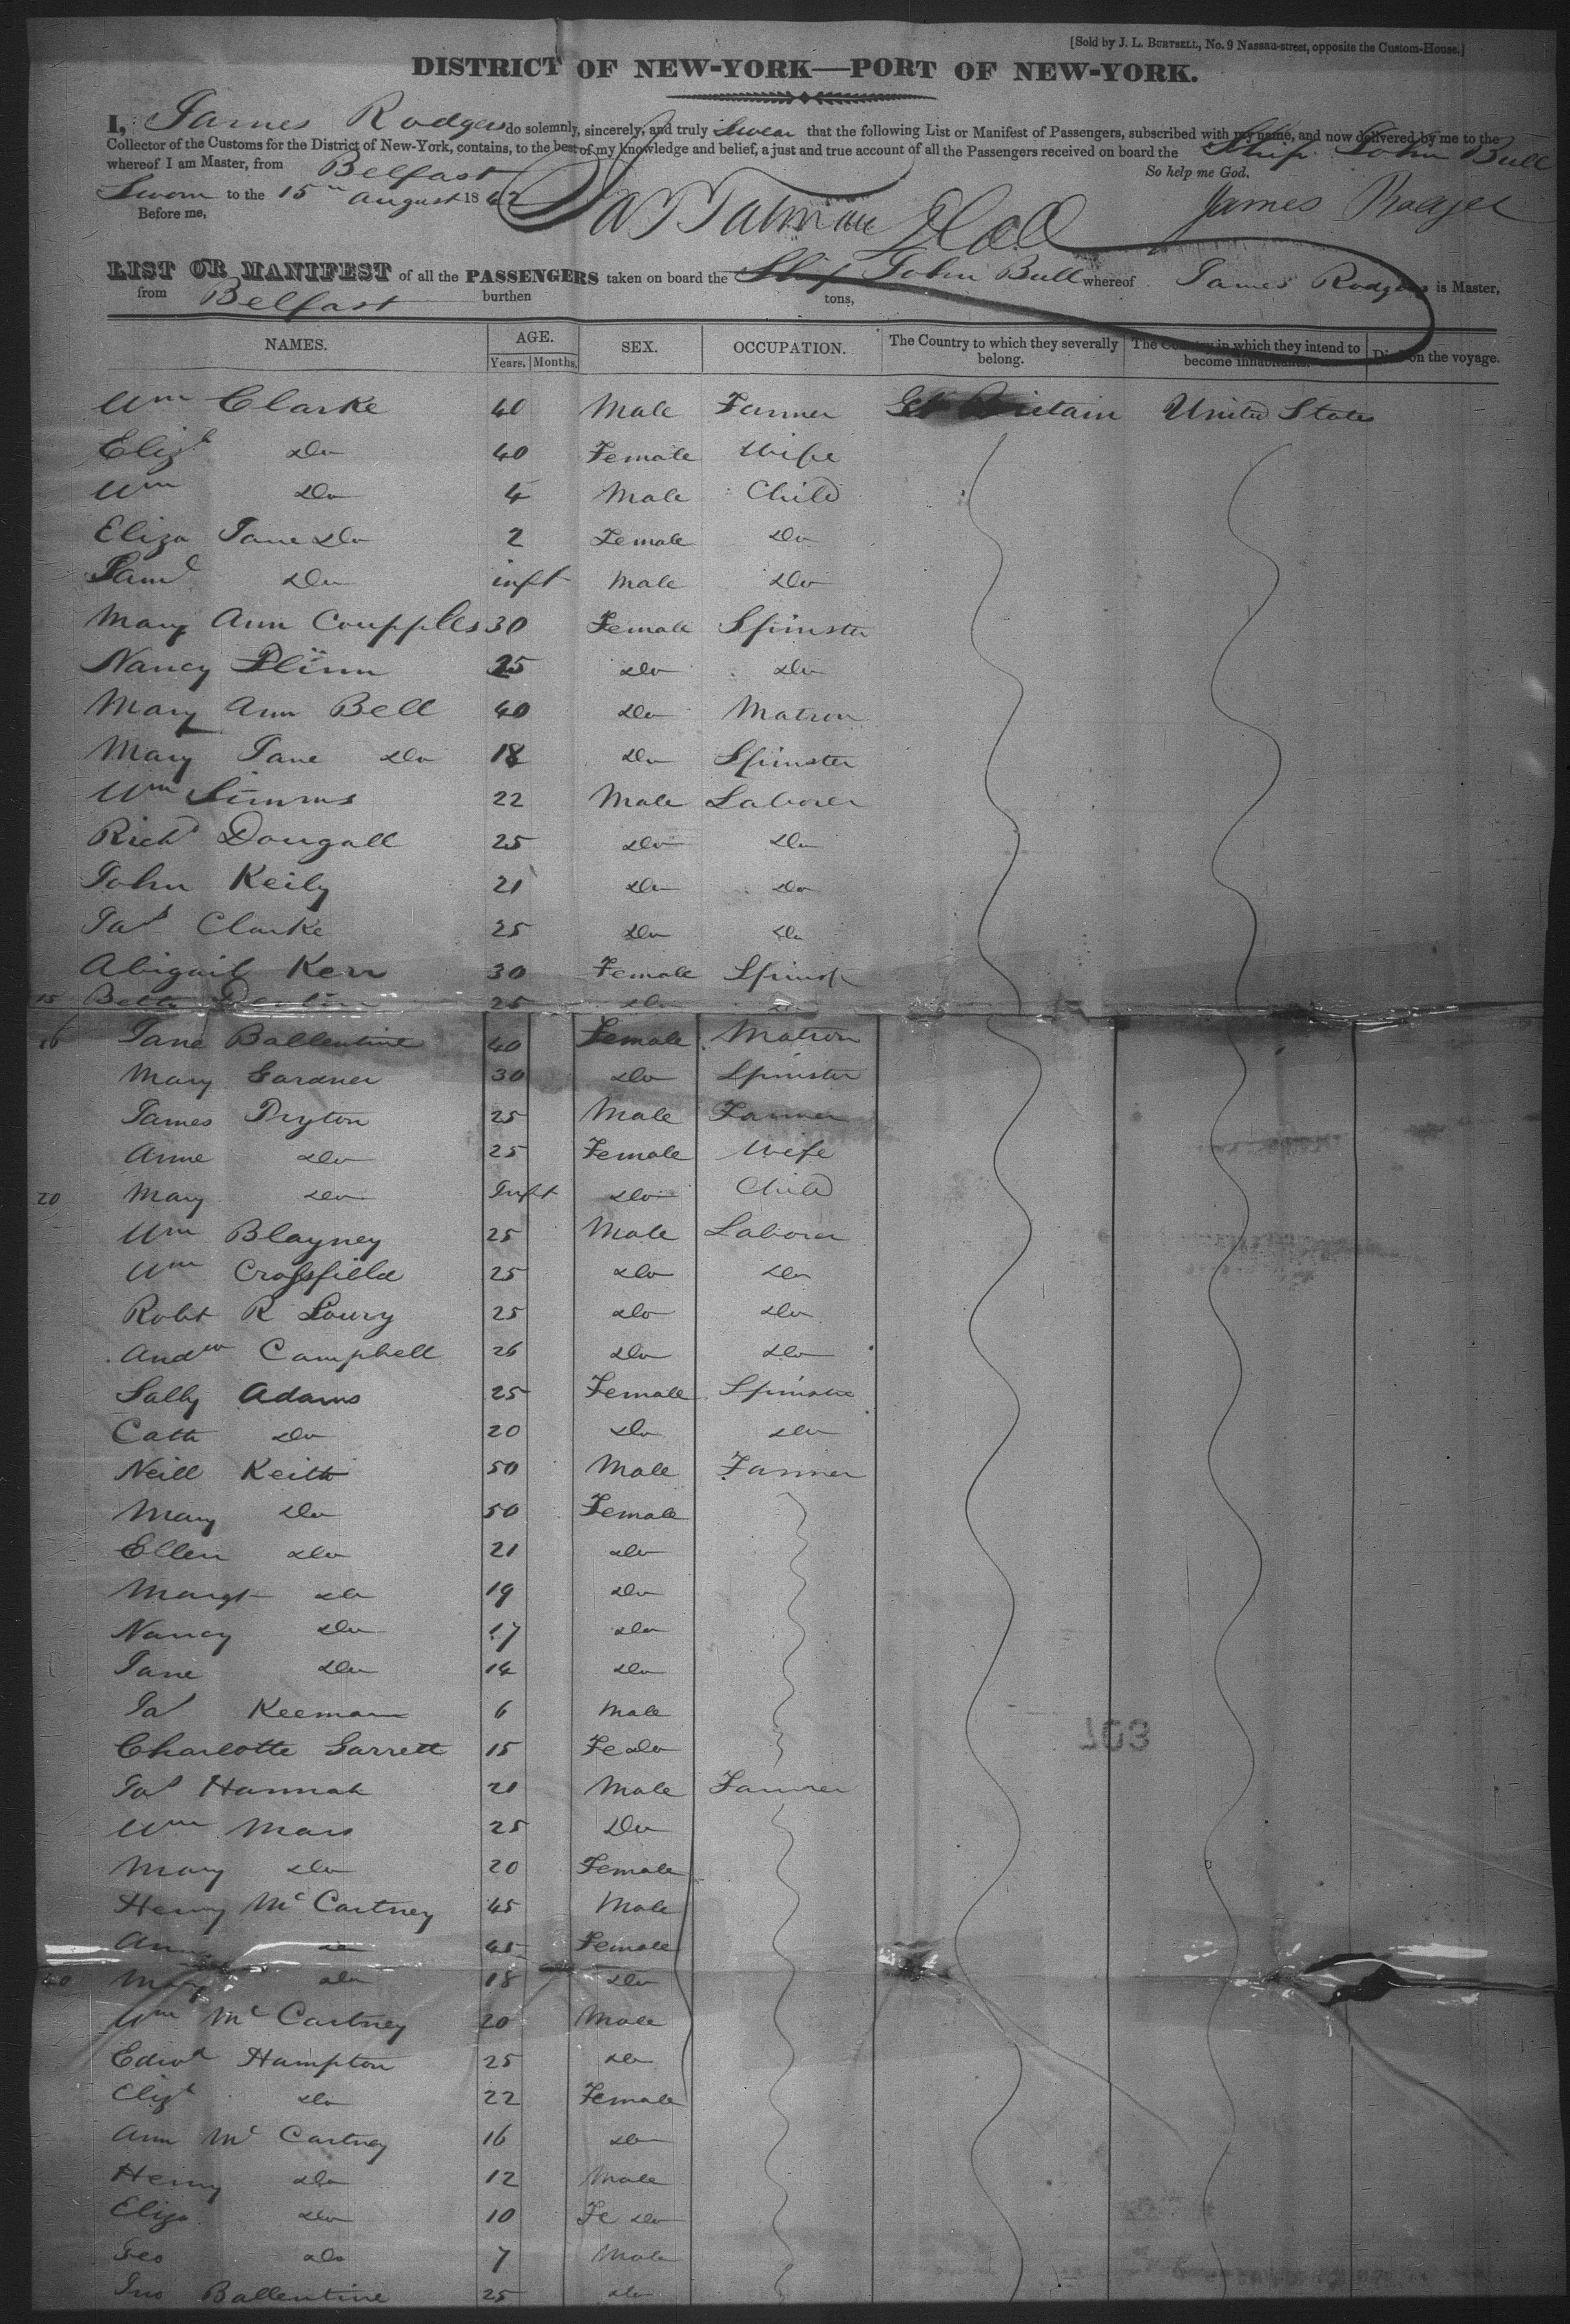 [Sold by J. L. Burtsell, No. 9 Nassau-street, opposite the Custom-House.]
DISTRICT OF NEW-YORK—PORT OF NEW-YORK.
I, James Rodgers do solemnly, sincerely, and truly Swear that the following List or Manifest of Passengers, subscribed with my name, and now delivered by me to the
Collector of the Customs for the District of New-York, contains, to the best of my knowledge and belief, a just and true account of all the Passengers received on board the Ship John Bull
whereof I am Master, from Belfast So help me God.
Sworn to the 15th August 1842
Before me, James Rodger
LIST OR MANIFEST of all the PASSENGERS taken on board the Ship John Bull whereof James Rodgers is Master,
from Belfast burthen tons,
NAMES. AGE. Years. Months. SEX. OCCUPATION. The Country to which they severally belong. The Country in which they intend to become inhabitants. Died on the voyage.
Wm Clarke 40 Male Farmer Gt Britain United States
Elizth Do 40 Female Wife
Wm Do 4 Male Child
Eliza Jane Do 2 Female Do
Saml Do inft Male Do
Mary Ann Coupples 30 Female Spinster
Nancy Flinn 25 Do Do
Mary Ann Bell 40 Do Matron
Mary Jane Do 18 Do Spinster
Wm Simms 22 Male Laborer
Richd Dougall 25 Do Do
John Keily 21 Do Do
Jas Clarke 25 Do Do
Abigail Kerr 30 Female Spinsr
15 25 Do Do
16 Jane Ballentine 40 Female Matron
Mary Gardner 30 Do Spinster
James Pryton 25 Male Farmer
Anne Do 25 Female Wife
20 Mary Do Inft Do Child
Wm Blayney 25 Male Laborer
Wm Crossfield 25 Do Do
Robt R Lowry 25 Do Do
Andw Campbell 26 Do Do
Sally Adams 25 Female Spinster
Cath Do 20 Do Do
Neill Keith 50 Male Farmer
Mary Do 50 Female
Ellen Do 21 Do
Margt Do 19 Do
Nancy Do 17 Do
Jane Do 14 Do
Jas Keeman 6 Male
Charlotte Garrett 15 Fe do
Jas Hannah 21 Male Farmer
Wm Mars 25 Do
Mary Do 20 Female
Henry McCartney 45 Male
Ann Do 45 Female
40 Mary do 18 Do
Wm McCartney 20 Male
Edwd Hampton 25 Do
Elizth Do 22 Female
Ann McCartney 16 Do
Henry Do 12 Male
Eliza Do 10 Fe Do
Geo do 7 Male
Jno Ballentine 25 do
703